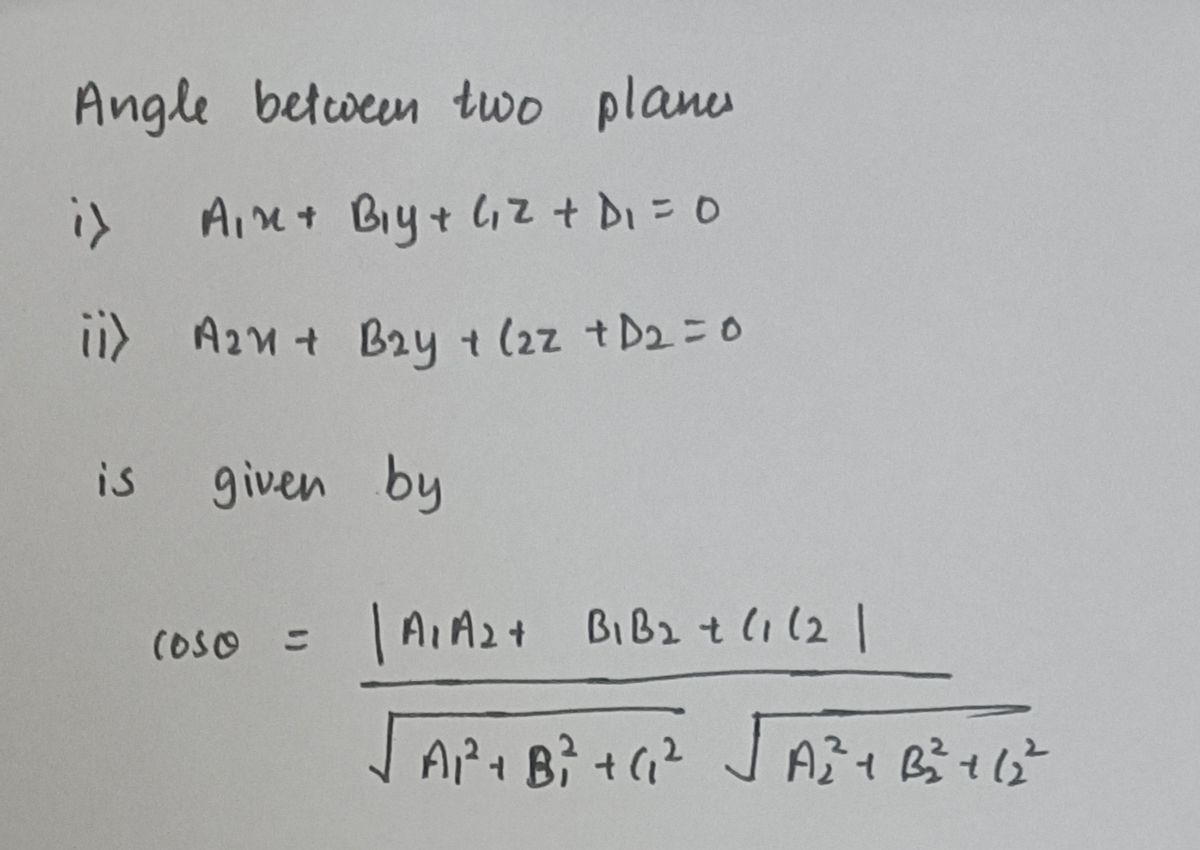 Angle between two planes
i) A₁x + B₁y + C₁z + D₁ = 0
ii) A2x + B2y + C2z + D2 = 0
is given by
cosθ = | A₁A₂ + B₁B₂ + C₁C₂ |
√A₁² + B₁² + C₁² √A₂² + B₂² + C₂²